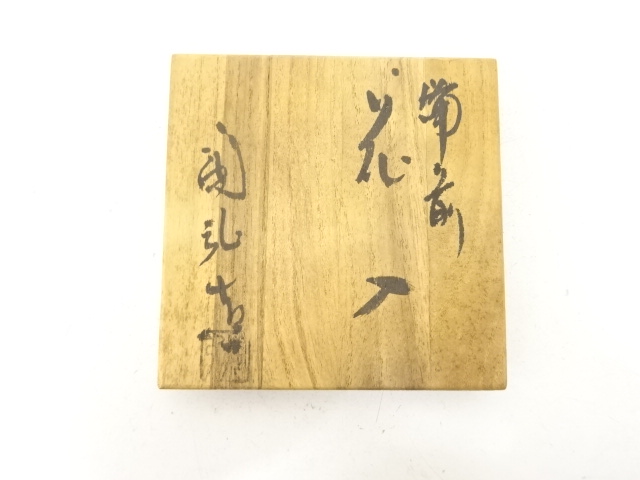 備前
花入
陶弘